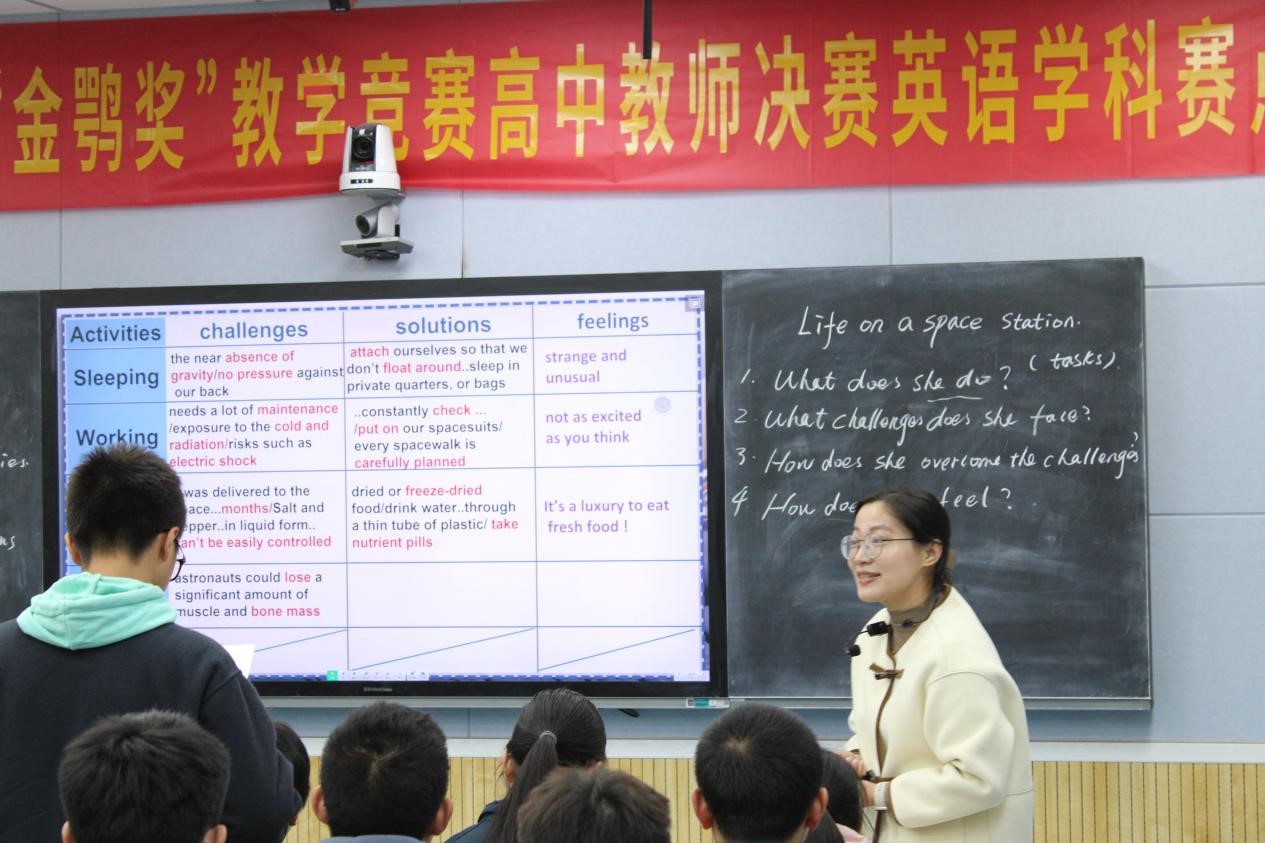 “金鹗奖”教学竞赛高中教师决赛英语学科赛
Activities challenges solutions feelings
Sleeping
the near absence of
gravity/no pressure against
our back
attach ourselves so that we
don't float around..sleep in
private quarters, or bags
strange and
unusual
Working
needs a lot of maintenance
/exposure to the cold and
radiation/risks such as
electric shock
..constantly check ...
/put on our spacesuits/
every spacewalk is
carefully planned
not as excited
as you think
was delivered to the
months/Salt and
in liquid form..
be easily controlled
dried or freeze-dried
food/drink water..through
a thin tube of plastic/ take
nutrient pills
It's a luxury to eat
fresh food !
astronauts could lose a
significant amount of
muscle and bone mass
Life on a space station.
1. What does she do? (tasks).
2. What challenges does she face?
3. How does she overcome the challenges
4. How feel?